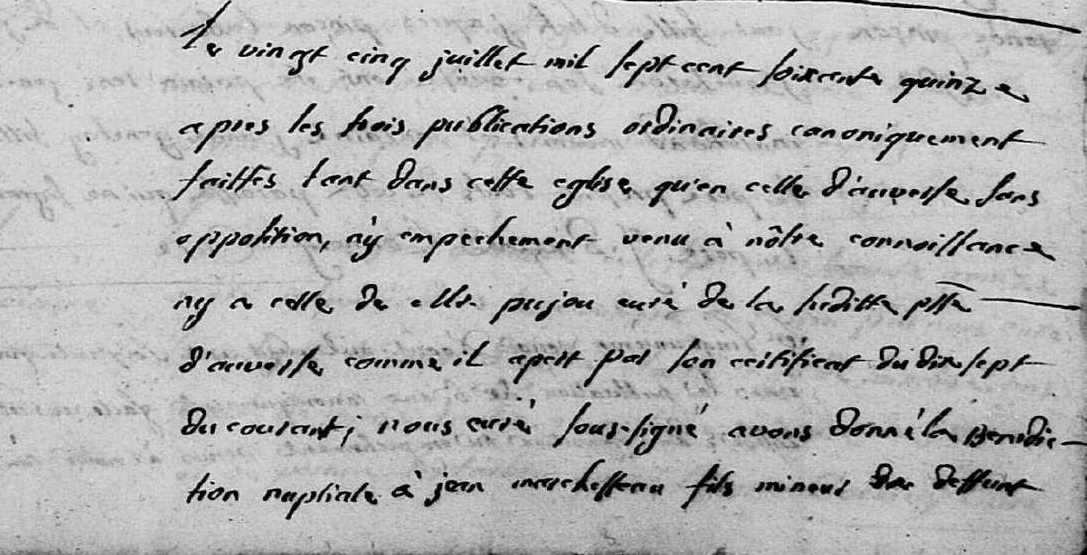 Le vingt cinq juillet mil sept cent soixente quinze
apres les trois publications ordinaires canoniquement
faittes tant dans cette eglise qu'en celle d'auverse sans
oppolition, ny empechement venu à nôtre connoissance
ny a celle de Mr pujou curé de la susditte psse
d'auverse comme il apert par son certificat du dix sept
du courant; nous curé sous-signé avons donné la Benedic-
tion nuptiale à jean marchesseau fils mineur de deffunt